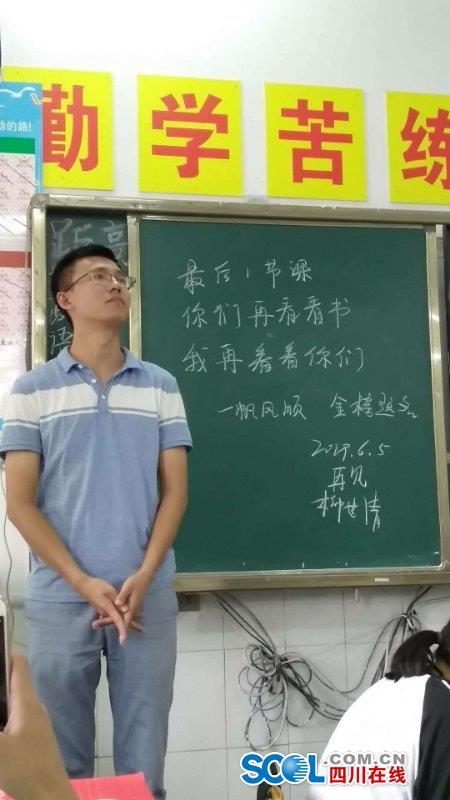 勤学苦练
动的路!
距高
语
最后1节课
你们再看看书
我再看看你们
一帆风顺 金榜题名
2019.6.5
再见
SCOL.COM.CN
四川在线